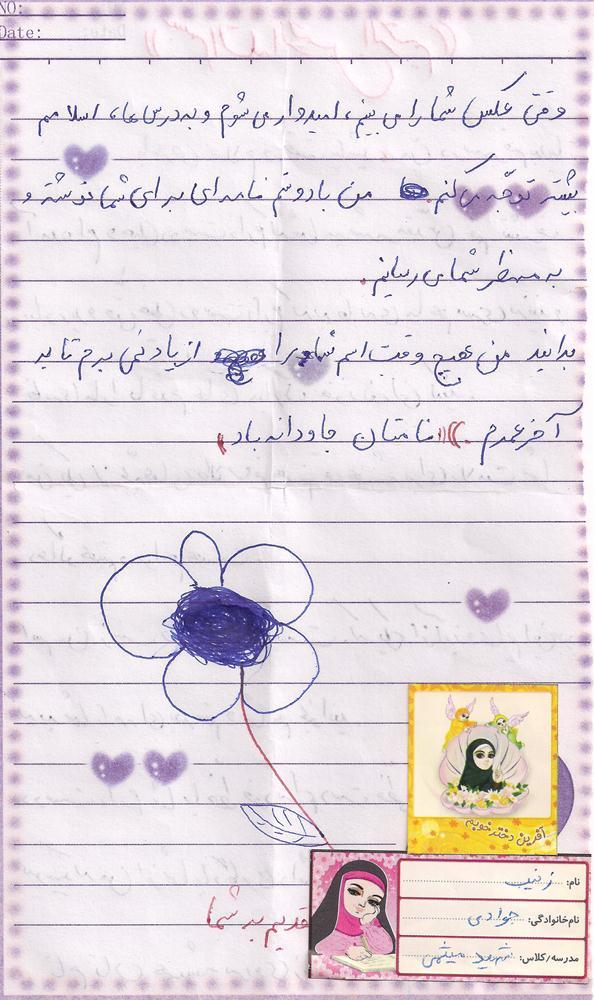 NO:
Date:
وقتی عکس شما را می بینم، امیدوار می شوم و به درس ها، اسلامم
بیشتر توجّه می کنم. من با دوستم نامه ای برای شما نوشته و
به منظر شما می رسانیم.
بدانید من هیچ وقت اسم شما را از یاد نمی برم تا به
آخر عمرم. ((نامتان جاودانه باد))
آفرین دختر خوبم
نام: زینب
نام خانوادگی: جوادی
مدرسه/کلاس: شهید میثمی
تقدیم به شما